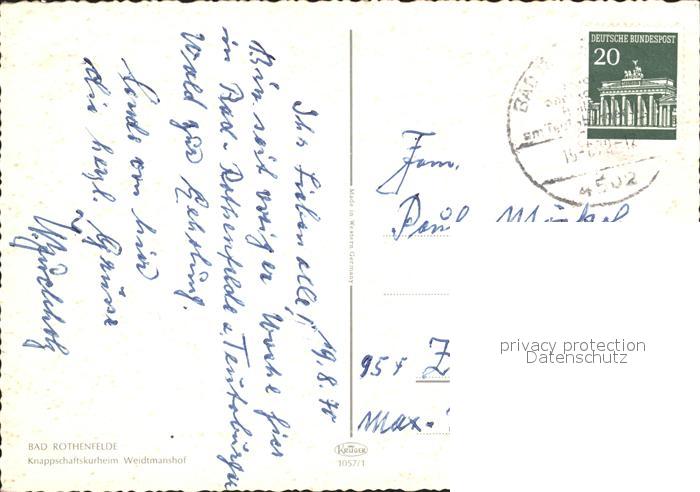 19.8.70
Ihr Lieben alle,
Bin seit voriger Woche hier
in Bad-Rothenfelde a. Teutoburger
Wald zur Erholung.
Sende von hier
die herzl. Grüsse
Fam.
Paul
954 Z
Max-
DEUTSCHE BUNDESPOST
20
BAD
4502
Made in Western Germany
privacy protection
Datenschutz
BAD ROTHENFELDE
Knappschaftskurheim Weidtmanshof
KRÜGER
1057/1